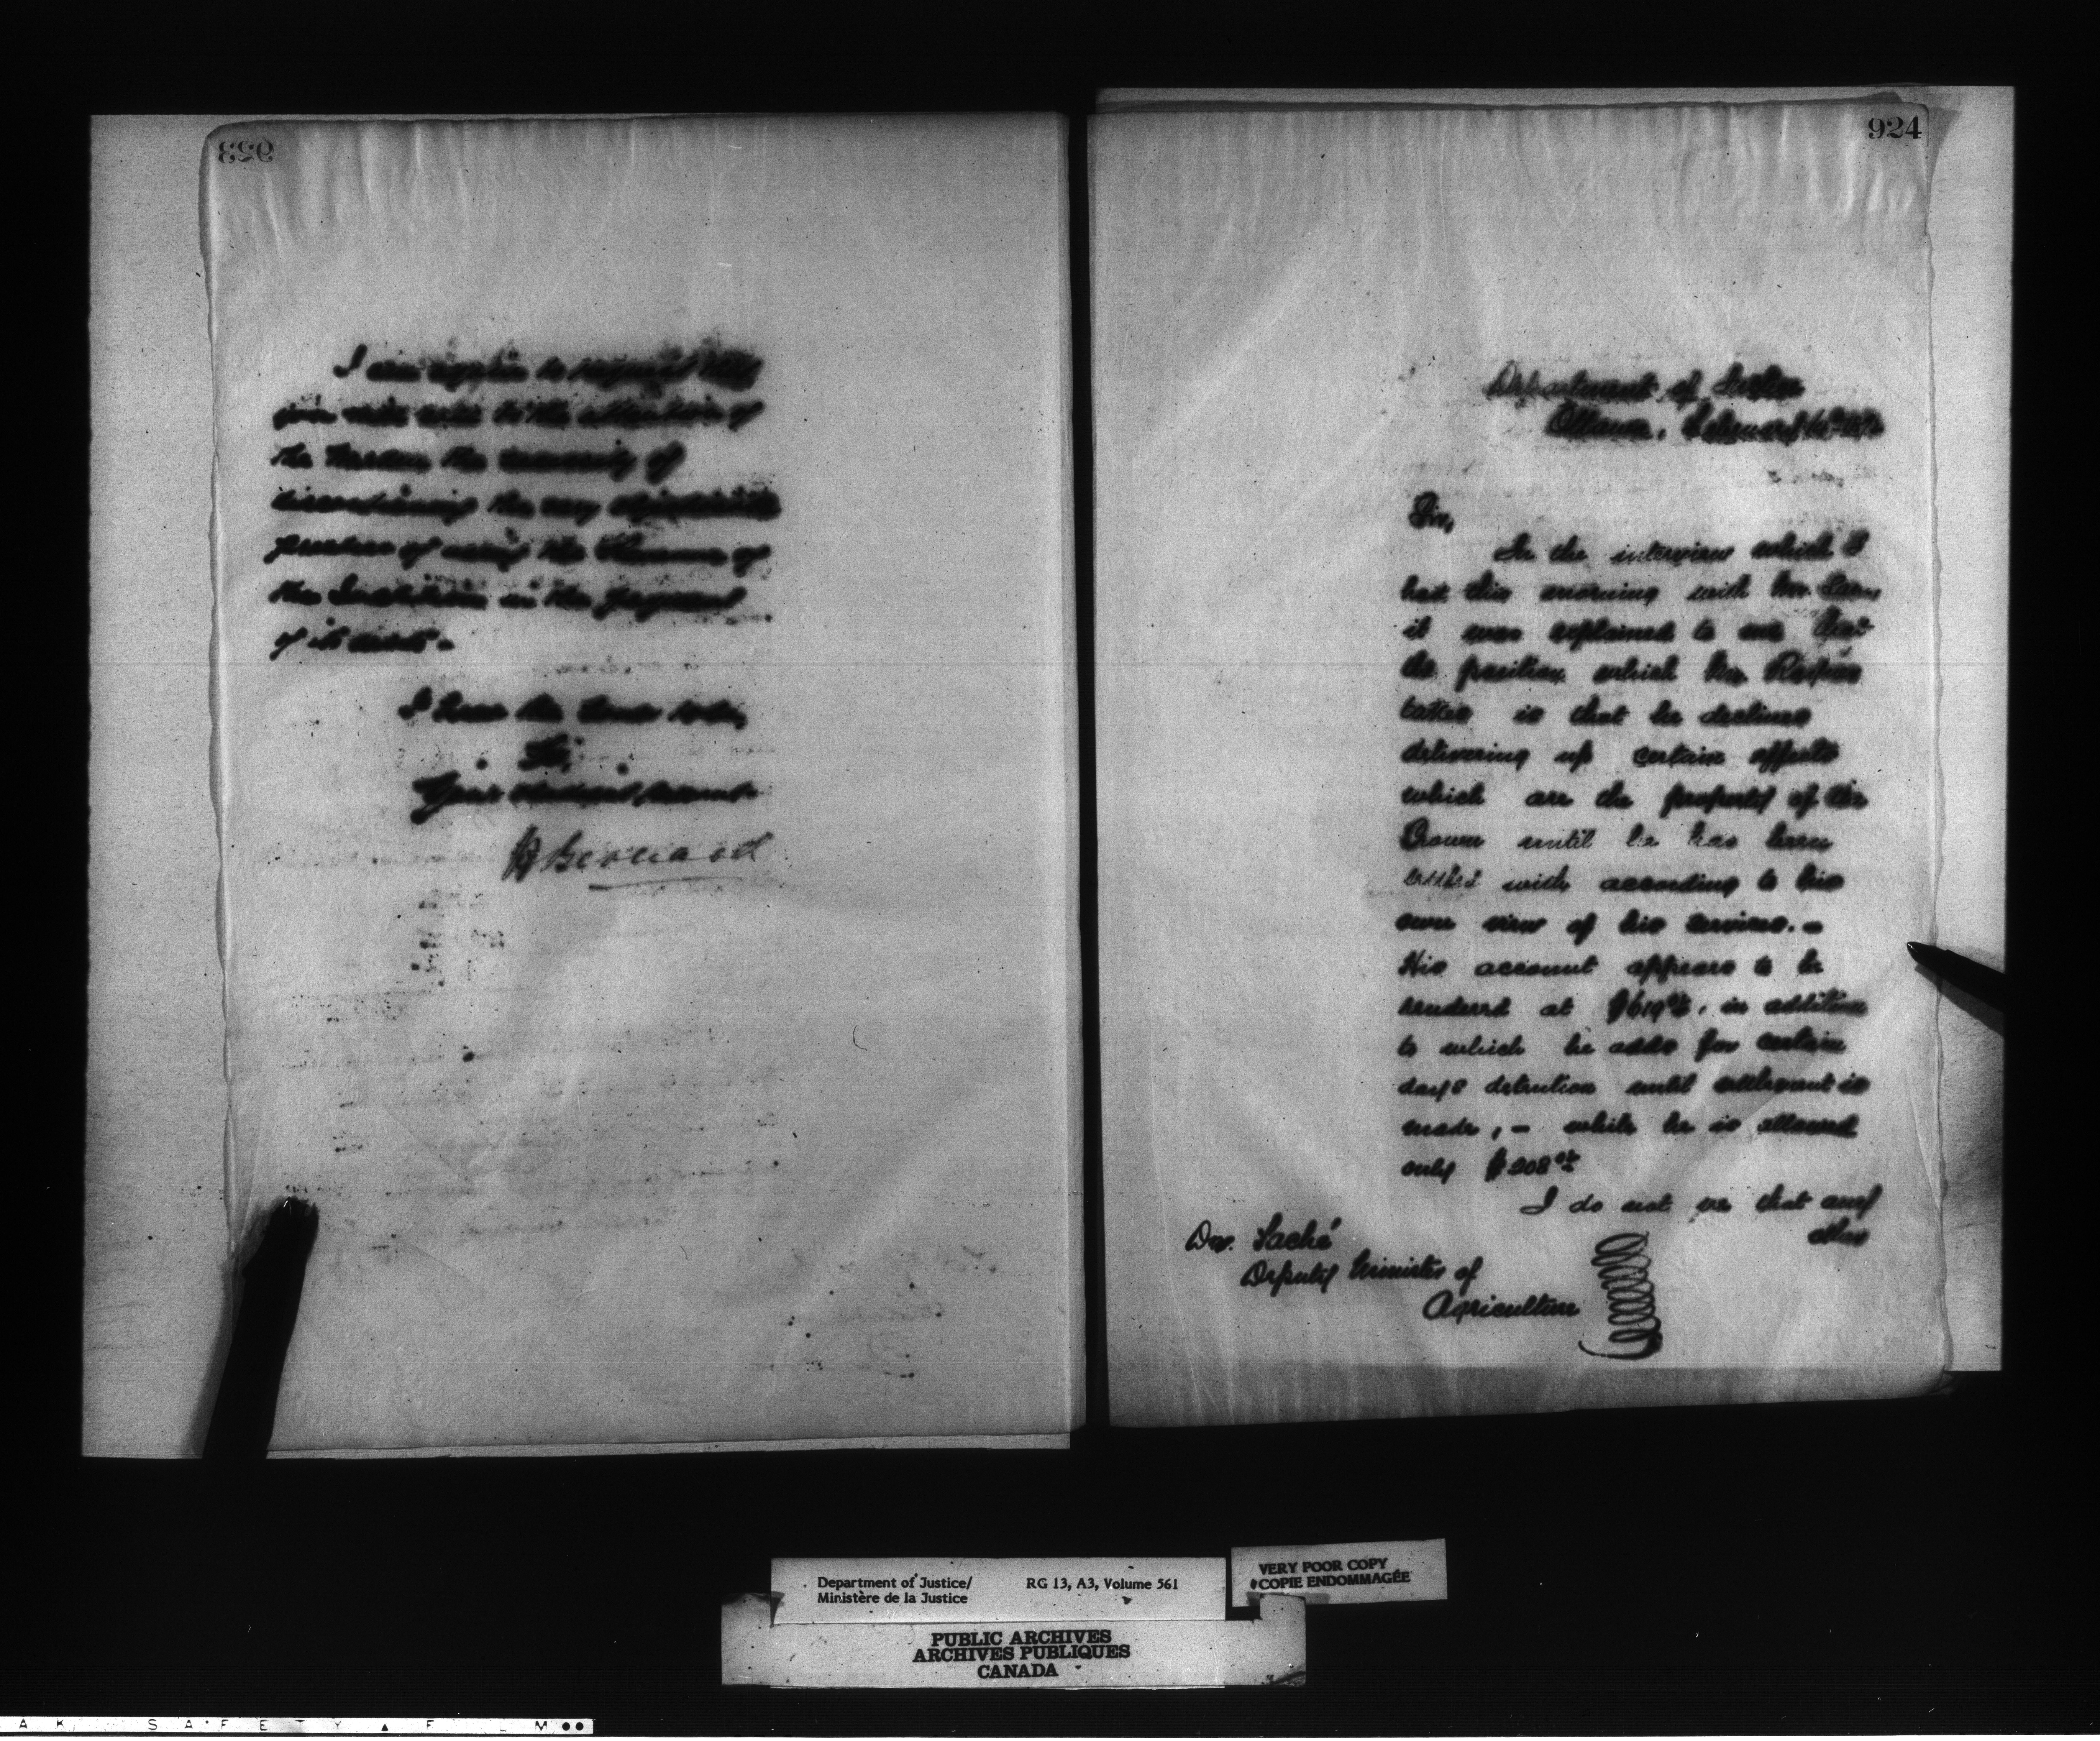 923
I am again to request that
you will call to the attention of
the Warden the necessity of
discontinuing the very objectionable
practice of using the Revenue of
the Institution in the payment
of its debts.
I have the honor to be,
Sir,
Your obedient servant
H Bernard
924
Department of Justice
Ottawa, February
Sir,
In the interview which I
had this morning with Mr.
it was explained to me that
the position which Mr.
takes is that he declines
delivering up certain effects
which are the property of the
Crown until he has been
settled with according to his
own view of his services. –
His account appears to be
rendered at $619, in addition
to which he adds for certain
days detention until settlement is
made, – while he is allowed
only $208
I do not see that any
other
Dr. Taché
Deputy Minister of
Agriculture
Department of Justice/ RG 13, A3, Volume 561
Ministère de la Justice
VERY POOR COPY
COPIE ENDOMMAGÉE
PUBLIC ARCHIVES
ARCHIVES PUBLIQUES
CANADA